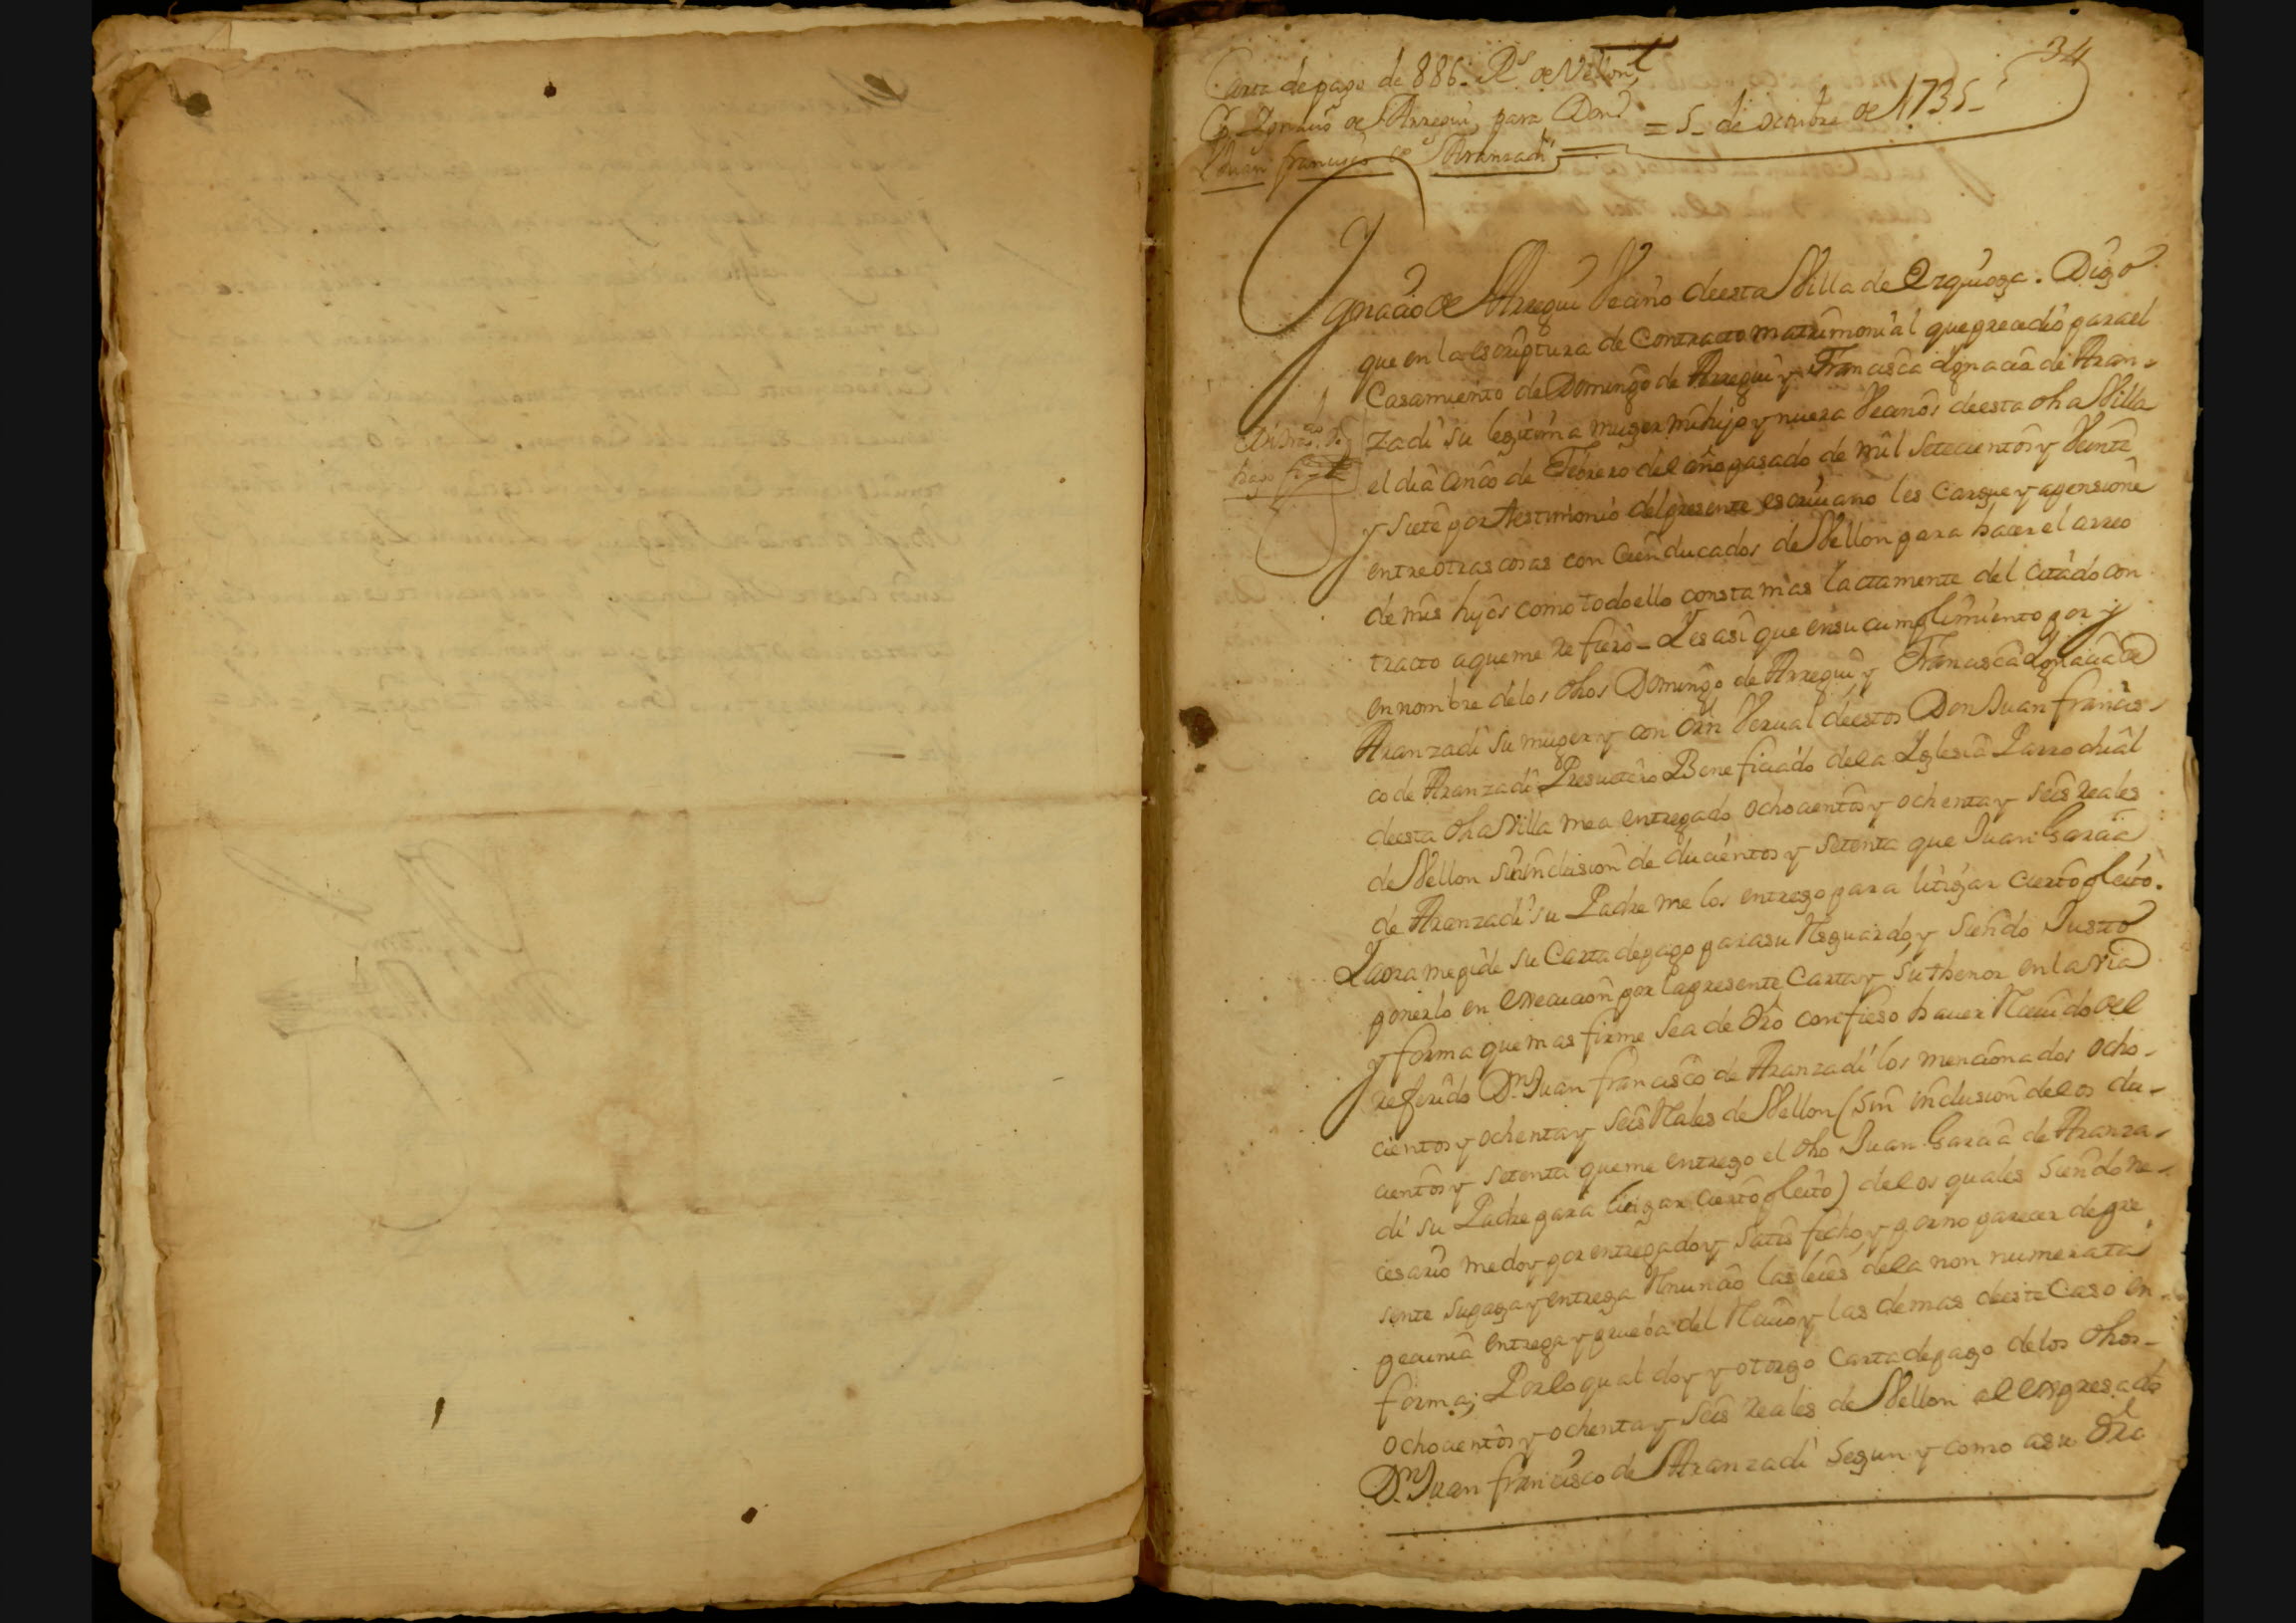 34
Carta de pago de 886. Rs de Vellon,
Ignacio de Arregui, para Don
Juan francisco de Aranzadi =
= 5 de octubre de 1735
Ignacio de Arregui Vecino deesta Villa de Orquioza. Digo
que en la escriptura de Contracto matrimonial queprecedio parael
Casamiento de Domingo de Arregui y Francisca Ignacia de Aran-
zadi su legitima muger mi hijo y nuera Vecinos deesta dha Villa
el dia cinco de Febrero del año pasado de mil setecientos y Veinte
y siete por testimonio del presente escriuano les cargue y apensione
entre otras cosas con cien ducados de Vellon para hacer el arreo
de mis hijos como todo ello consta mas lactamente del citado con
tracto aqueme refiero - I es asi que ensu cumplimiento por y
en nombre de los dhos Domingo de Arregui y Francisca Ignacia de
Aranzadi su muger y con orn Verual deestos Don Juan francis-
co de Aranzadi Presuitero Beneficiado dela Iglesia Parrochial
deesta dha Villa me a entregado ochocientos y ochenta y seis reales
de Vellon sin inclusion de ducientos y setenta que Juan Garcia
de Aranzadi su Padre me los entrego para litigar cierto pleito.
I aora me pide su Carta depago parasu Resguardo, y siendo Justo
ponerlo en execucion por la presente Carta y su thenor en la via
y forma que mas firme sea de dro confieso hauer Reciuido del
referido Dn Juan francisco de Aranzadi los mencionados ocho-
cientos y ochenta y seis Reales de Vellon (sin inclusion delos du-
cientos y setenta que me entrego el dho Juan Garcia de Aranza-
di su Padre para litigar cierto pleito) delos quales siendo ne-
cesario me doy por entregado y satisfecho, y por no parecer de pre
sente su paga y entrega Renuncio las leies dela non numerata
pecunia entrega y prueba del Reciuo y las demas deeste Caso en
forma; Por lo qual doy y otorgo Carta depago de los dhos-
ochocientos y ochenta y seis reales de Vellon al expresado
Dn Juan francisco de Aranzadi segun y como asu dro